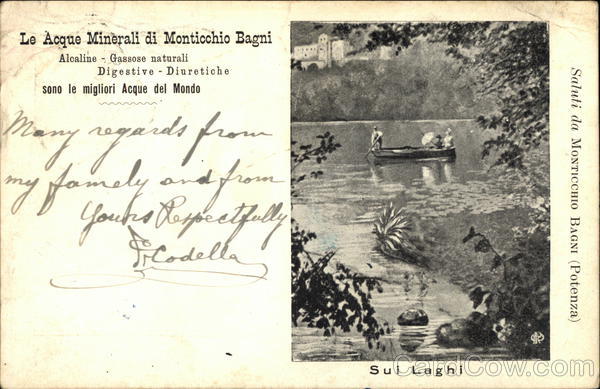 Le Acque Minerali di Monticchio Bagni
Alcaline - Gassose naturali
Digestive - Diuretiche
sono le migliori Acque del Mondo
Many regards from
my famely and from
Yours Respectfully
F. Codella
Saluti da MONTICCHIO BAGNI (Potenza)
Sui Laghi
CardCow.com